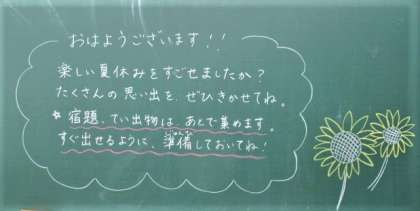 おはようございます!!
楽しい夏休みをすごせましたか?
たくさんの思い出を、ぜひきかせてね。
* 宿題、てい出物は、あとで集めます。
すぐ出せるように、準備しておいてね!